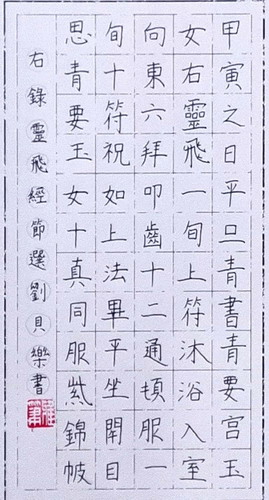 甲寅之日平旦青書青要宮玉
女右靈飛一旬上符沐浴入室
向東六拜叩齒十二通頓服一
旬十符祝如上法畢平坐閉目
思青要玉女十真同服紫錦帔
右錄靈飛經節選劉貝樂書